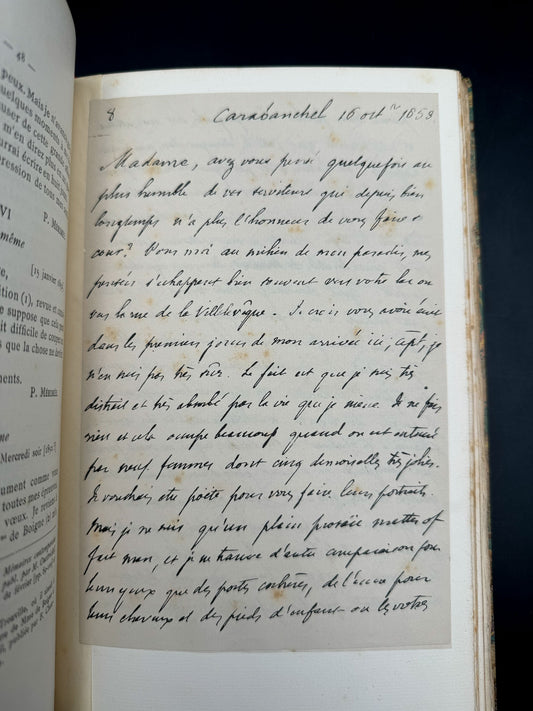 — 48 —
peux. Mais je n'ai
quelques momen
user de cette
m'en dire plus
ourrai écrire en
pression de tous mes
P. MÉRIMÉE
VI
même
[15 janvier 185
ition (1), revue et
e suppose que cela
it difficile de couper
s que la chose ne
ments.
P. MÉRIMÉE.
me
Mercredi soir [185
ument comme vous
toutes mes épreuves
vœux. Je remets à
de Boigne
Mémoires
publ. par M.
de février
Trouville,
8
Carabanchel 16 oct re 1853
Madame, avez vous pensé quelquefois au
plus humble de vos serviteurs qui depuis bien
longtemps n'a plus l'honneur de vous faire sa
cour? Pour moi au milieu de mon paradis, mes
pensées s'échappent bien souvent vers votre lac ou
vers la rue de la Villelévêque. Je crois vous avoir écrit
dans les premiers jours de mon arrivée ici, je
n'en suis pas très sûr. Le fait est que je suis très
distrait et très absorbé par la vie que je mène. Je ne fais
rien et cela occupe beaucoup quand on est entouré
par neuf femmes dont cinq demoiselles très jolies.
Je voudrais etre poëte pour vous faire leurs portraits.
Mais je ne suis qu'un plain prosaic matter of
fact man, et je ne trouve d'autre comparaison pour
leurs yeux que des portes cochères, de l'encre pour
leurs cheveux et des pieds d'enfant ou les votres